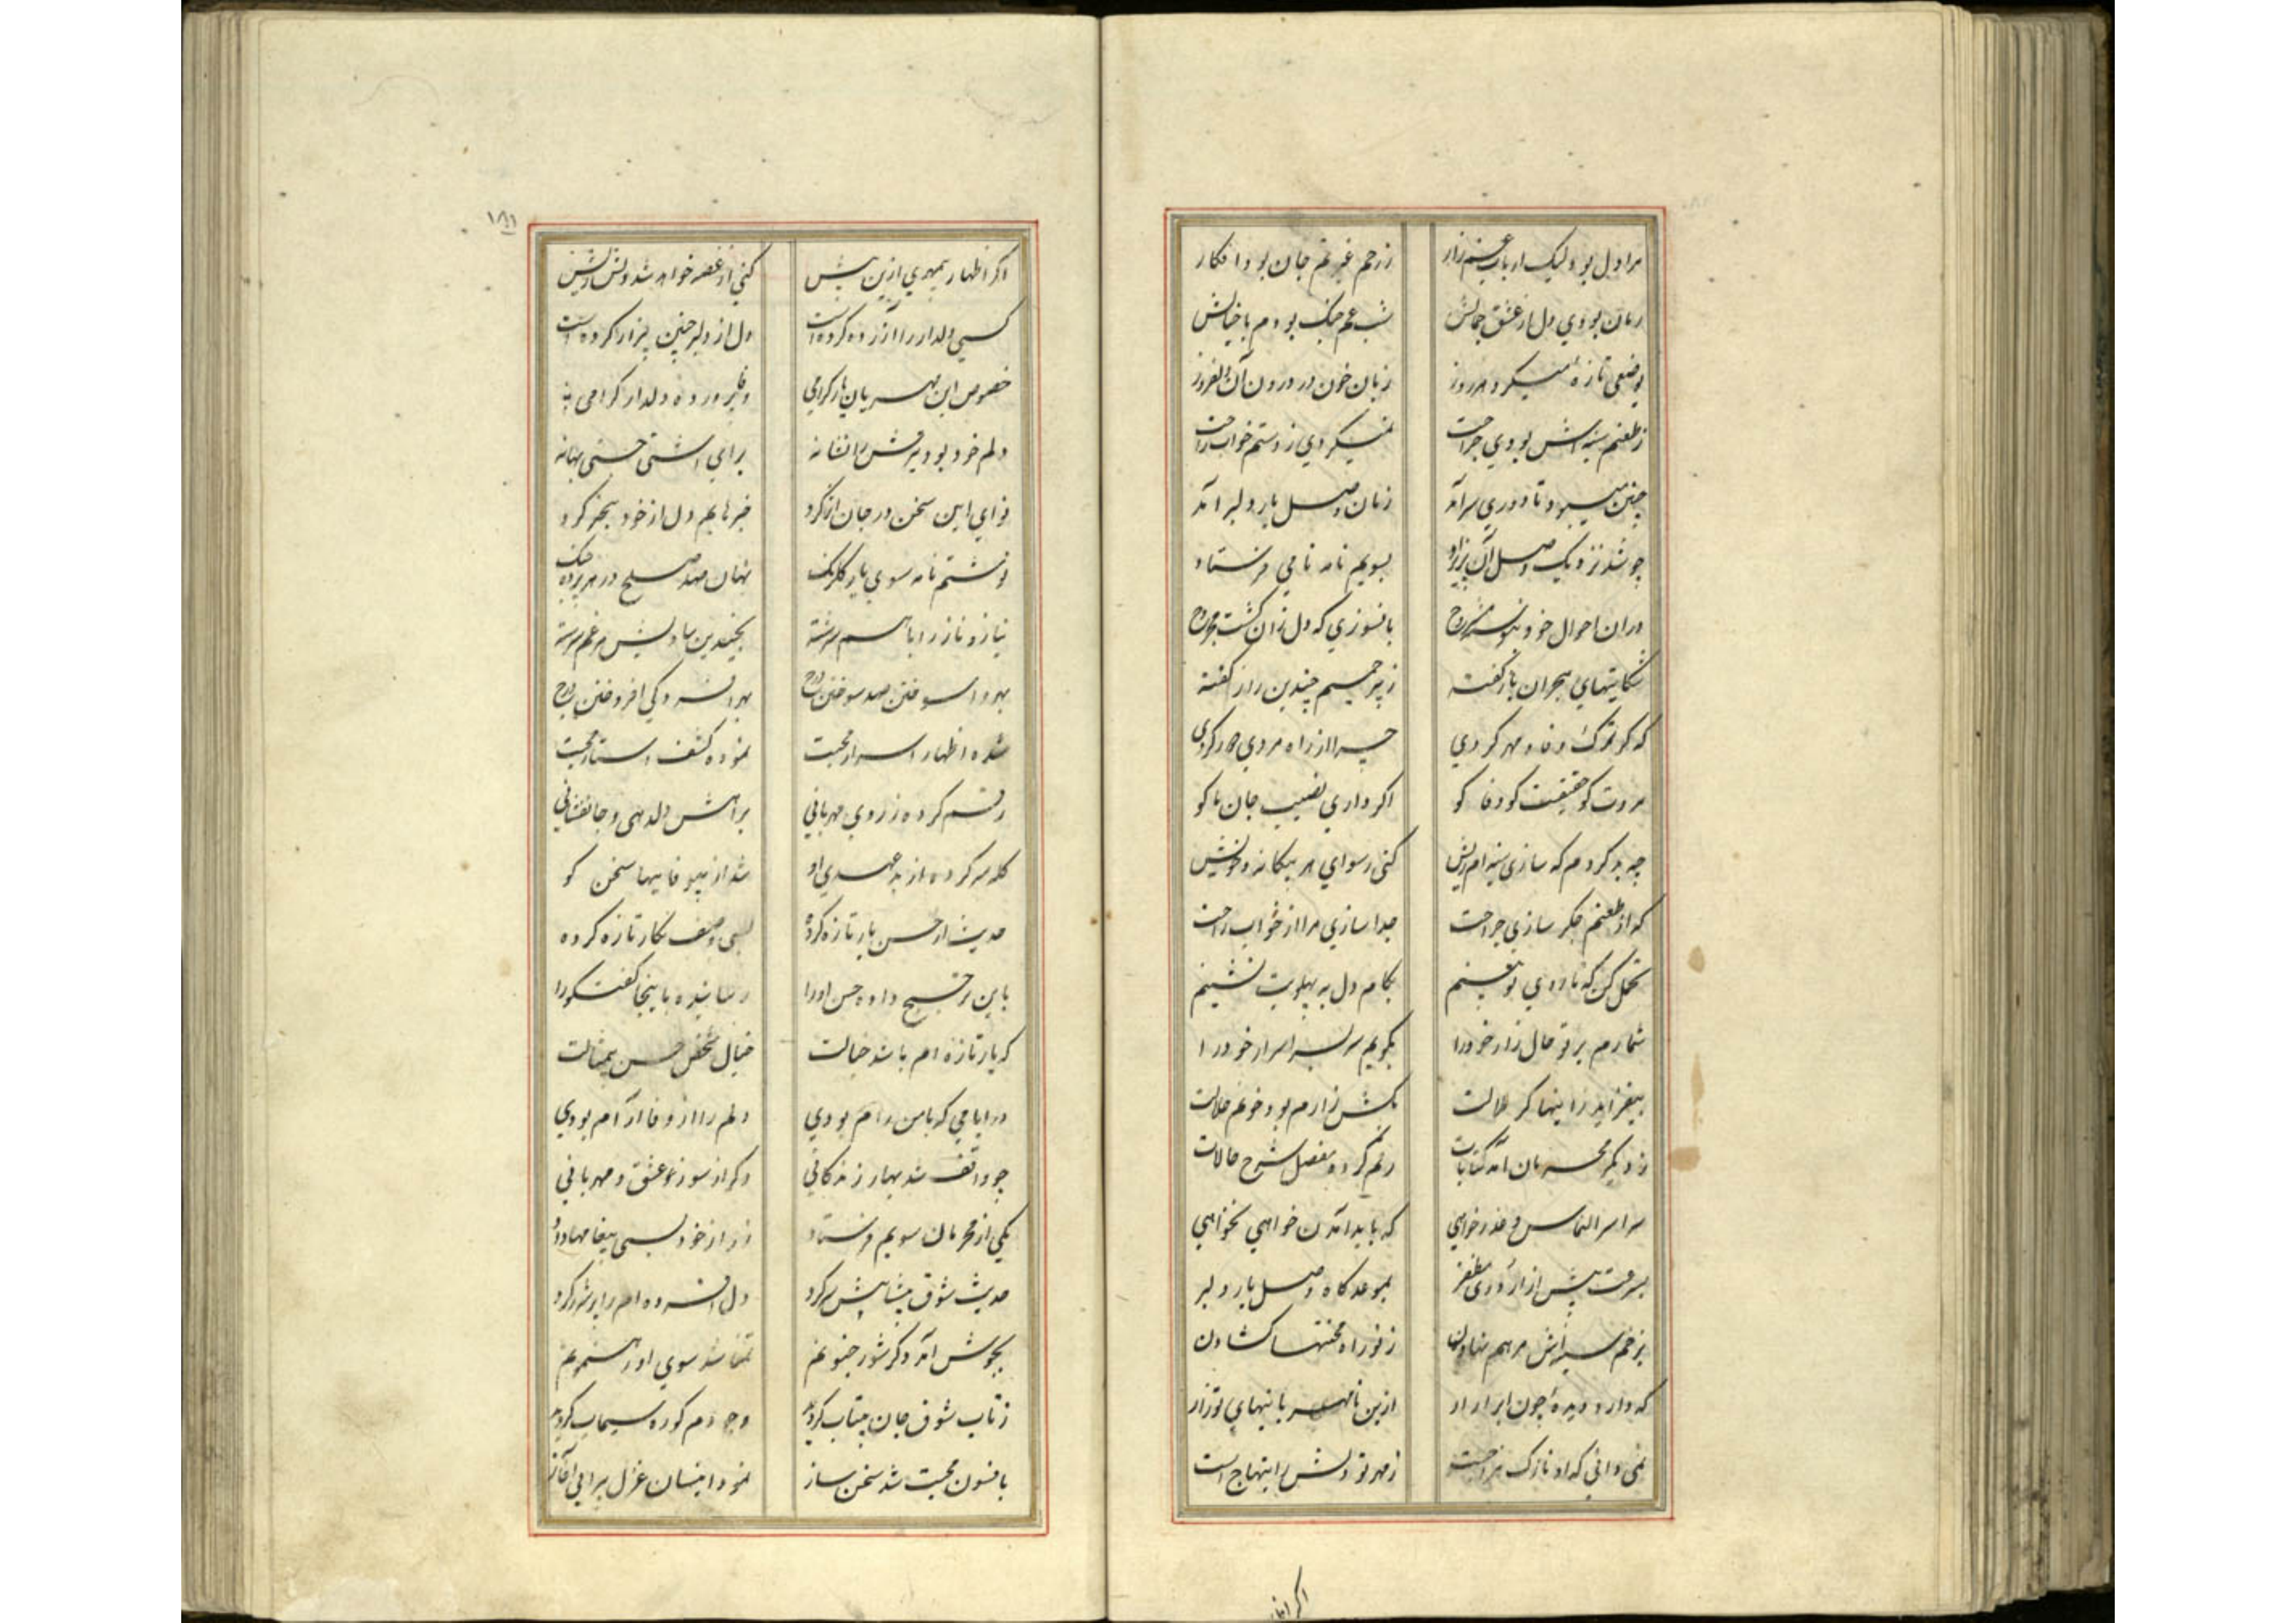 مرا دل بود لیک از بار غم زار ز زخم غم جان بود افکار
زمان بودی دل از عشق جمالش شب غم جنک بودم با خیالش
بوضعی تازه میکرد هر روز زبان خون در درون آن دلفروز
ز طعنم سینه اش بودی جراحت نمیکردی ز دستم خواب راحت
چنین میبود تا دوری سرآمد زمان وصل یار دلبر آمد
چو شد نزدیک وصل آن پریزاد بسویم نامه نامی فرستاد
در آن احوال خود مشروح بافسوزی که دل زان کشت مجروح
شکایتهای هجران باز گفته ز هر چندین راز گفته
که کو ترک وفا و مهر کردی چرا از راه مردی
مروت کو حقیقت کو وفا کو اگر داری نصیب جان ما کو
چه بد کردم که سازی سینه ام ریش کنی رسوای هر بیگانه و خویش
که از طعنم جگر سازی جراحت جدا سازی مرا از خواب راحت
تحمل کن که تا روی تو بینم بکام دل به پهلویت نشینم
شمارم بر تو حال زار خود را بگویم سر بسر اسرار خود را
بیفزاید زاینها گر ملالت بکش زارم بود خونم حلالت
ز دیگر محرمان آمد کتابات رقم کرده مفصل شرح حالات
سراسر التماس و عذرخواهی که باید آمدن خواهی نخواهی
بسرعت پیش از بموعدگاه وصل یار دلبر
بزخم سینه اش مرهم نهادن ز نو راه محنتها گشادن
که دارد دیده چون ابر آزار ازین نامهربانیهای تو زار
نمی دانی که او نازک مزاجست ز مهر تو دلش را ابتهاج است
اگر اظهار
۱۸۱
اگر اظهار بیمهری ازین بیش کنی از غصه خواهد شد دلش ریش
کسی دلدار را آزرده کرده است دل از دلبر چنین بیزار کرده است
خصوص این مهربان یار گرامی وفا پرورده دلدار گرامی
دلم خود بود تیرش را نشانه برای آشتی جستی بهانه
نوای این سخن در جان اثر کرد خبرهایم دل از خود بیخبر کرد
نوشتم نامه سوی یار گلرنگ نهان صد صلح در هر پرده جنگ
نیاز و ناز را با هم سرشته
بهر واسوختن صد سوختن درج بهر افسردگی افروختن درج
شده اظهار اسرار محبت نموده کشف استار محبت
رقم کرده ز روی مهربانی براهش دلدهی و جانفشانی
گله سر کرده از بد عهدی او شد از بیوفاییها سخن گو
حدیث از حسن یار تازه کرده بسی وصف نگار تازه کرده
باین ترجیح داده حسن او را رسانیده باینجا گفتگو را
که یار تازه ام باشد خیالت خیال شخص حسن بیمثالت
در ایامی که با من رام بودی دلم را از وفا آرام بودی
چو واقف شد بهار زندگانی دگر از سوز عشق و مهربانی
یکی از محرمان سویم فرستاد ز راز خود بسی پیغامها داد
حدیث شوق بیتابیش سر کرد دل افسرده ام را پر شرر کرد
بجوش آمد دگر شور جنونم تقاضا شد سوی او رهنمونم
ز تاب شوق جان بیتاب کردید وجودم کوره سیماب کردید
بافسون محبت شد سخن ساز نمود اینسان غزل آغاز